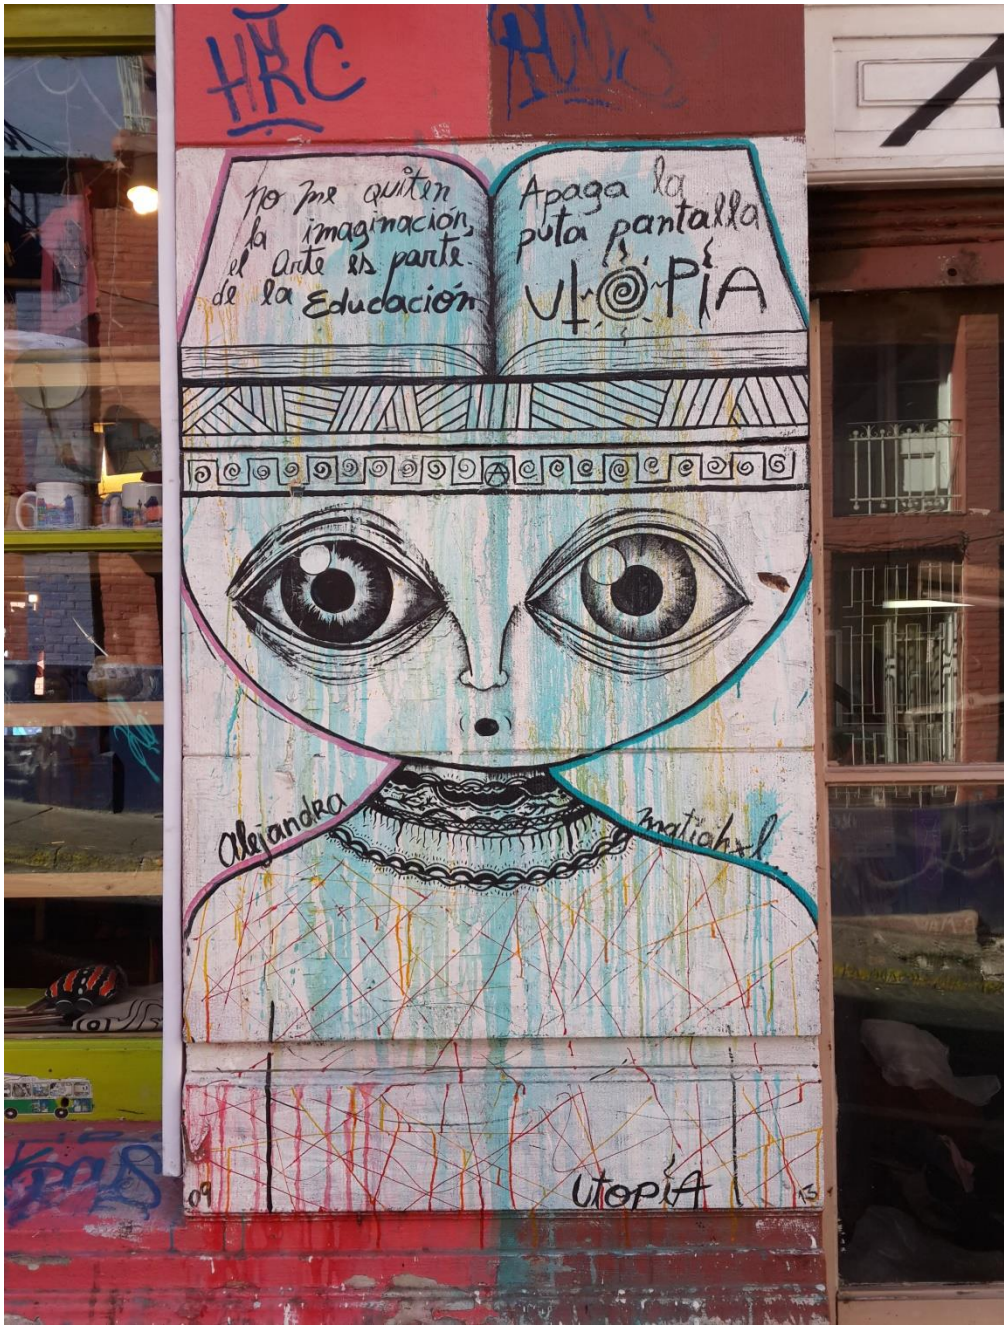 HRC
no me quiten
la imaginación,
el Arte es parte
de la Educación
Apaga la
puta pantalla
UtOPiA
Alejandra
UtOPíA
09
13